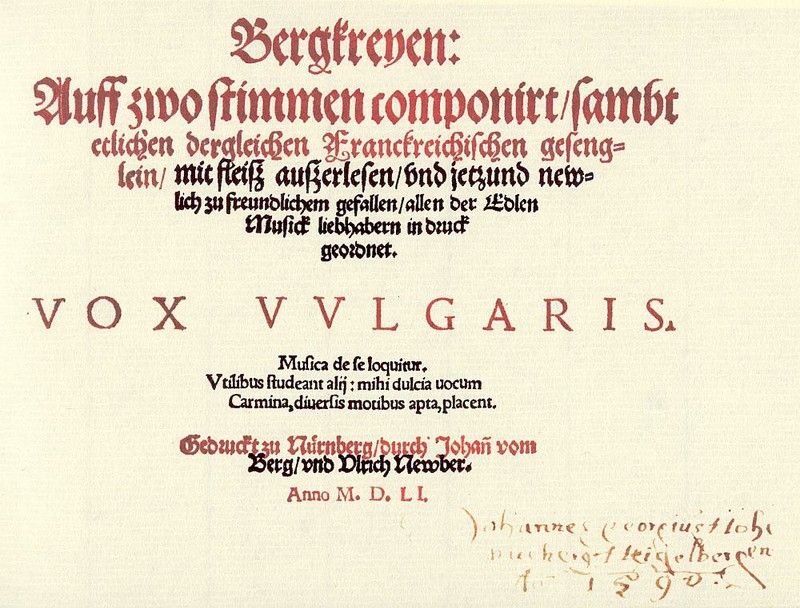 Bergkreyen:
Auff zwo stimmen componirt/sambt
etlichen dergleichen Franckreichischen geseng=
lein/ mit fleiß außerlesen/vnd jetzund new=
lich zu freundlichem gefallen/allen der Edlen
Musick liebhabern in druck
geordnet.
VOX VVLGARIS.
Musica de se loquitur.
Vtilibus studeant alij: mihi dulcia uocum
Carmina, diuersis motibus apta, placent.
Gedruckt zu Nürnberg/durch Johañ vom
Berg/vnd Vlrich Newber.
Anno M. D. LI.
Johannes georgius
1590